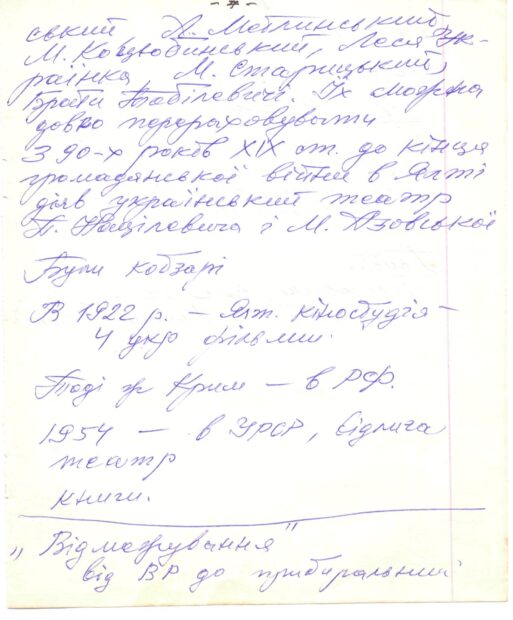 - 7 -
ський А. Метлинський,
М. Коцюбинський, Леся Ук-
раїнка М. Старицький,
Брати Тобілевичі. Їх можна
довго перераховувати
З 90-х років ХІХ ст. до кінця
громадянської війни в Ялті
діяв український театр
П. і М. Азовської
Були кобзарі
В 1922 р. – Ялт. кіностудія –
4 укр фільми.
Тоді ж Крим – в РФ.
1954 – в УРСР, відлига
театр
книги.
„Відмежування"
від ВР до прибиральниці